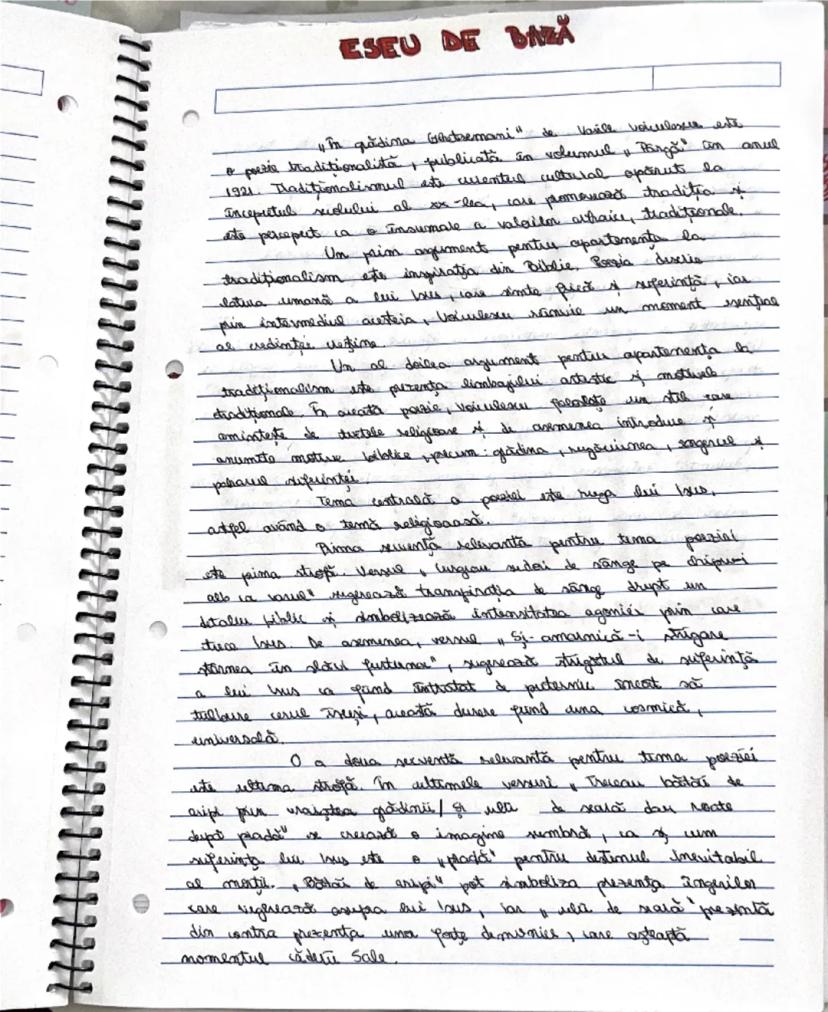 ESEU DE BAZĂ
„În grădina Ghetsemani" de Vasile Voiculescu este
o poezie tradiționalistă, publicată în volumul „Pârgă" în anul
1921. Tradiționalismul este curentul cultural apărut la
începutul secolului al XX-lea, care promovează tradiția și
este perceput ca o însumare a valorilor arhaice, tradiționale.
Un prim argument pentru apartenența la
tradiționalism este inspirația din Biblie. Poezia descrie
latura umană a lui Isus, care simte frică și suferință, iar
prin intermediul acesteia, Voiculescu un moment esențial
al credinței creștine.
Un al doilea argument pentru apartenența la
tradiționalism este prezența limbajului artistic și motivele
tradiționale. În această poezie, Voiculescu folosește un stil care
amintește de textele religioase și de asemenea introduce și
anumite motive biblice, precum: grădina, rugăciunea, sângerul și
paharul suferinței.
Tema centrală a poeziei este ruga lui Isus,
astfel având o temă religioasă.
Prima secvență relevantă pentru tema poeziei
este prima strofă. Versul „curgeau sudori de sânge pe chipu-i
alb ca varul" sugerează transpirația de sânge drept un
detaliu biblic și simbolizează intensitatea agoniei prin care
trece Isus. De asemenea, versul „Și-amarnică-i strigare
stârnea în slăvi furtuna", sugerează strigătul de suferință
a lui Isus ca fiind întratat de puternic încât să
tulbure cerul însuși, această durere fiind una cosmică,
universală.
O a doua secvență relevantă pentru tema poeziei
este ultima strofă. În ultimele versuri „Treceau bătăi de
aripi prin vraiștea grădinii/ Și ulii de seară dau roate
după pradă" se creează o imagine sumbră, ca și cum
suferința lui Isus este o „pradă" pentru destinul inevitabil
al morții. „Bătăi de aripi" pot simboliza prezența îngerilor
care veghează asupra lui Isus, iar „ulii de seară" prezintă
din contra prezența unor forțe demonice, care așteaptă
momentul căderii Sale.